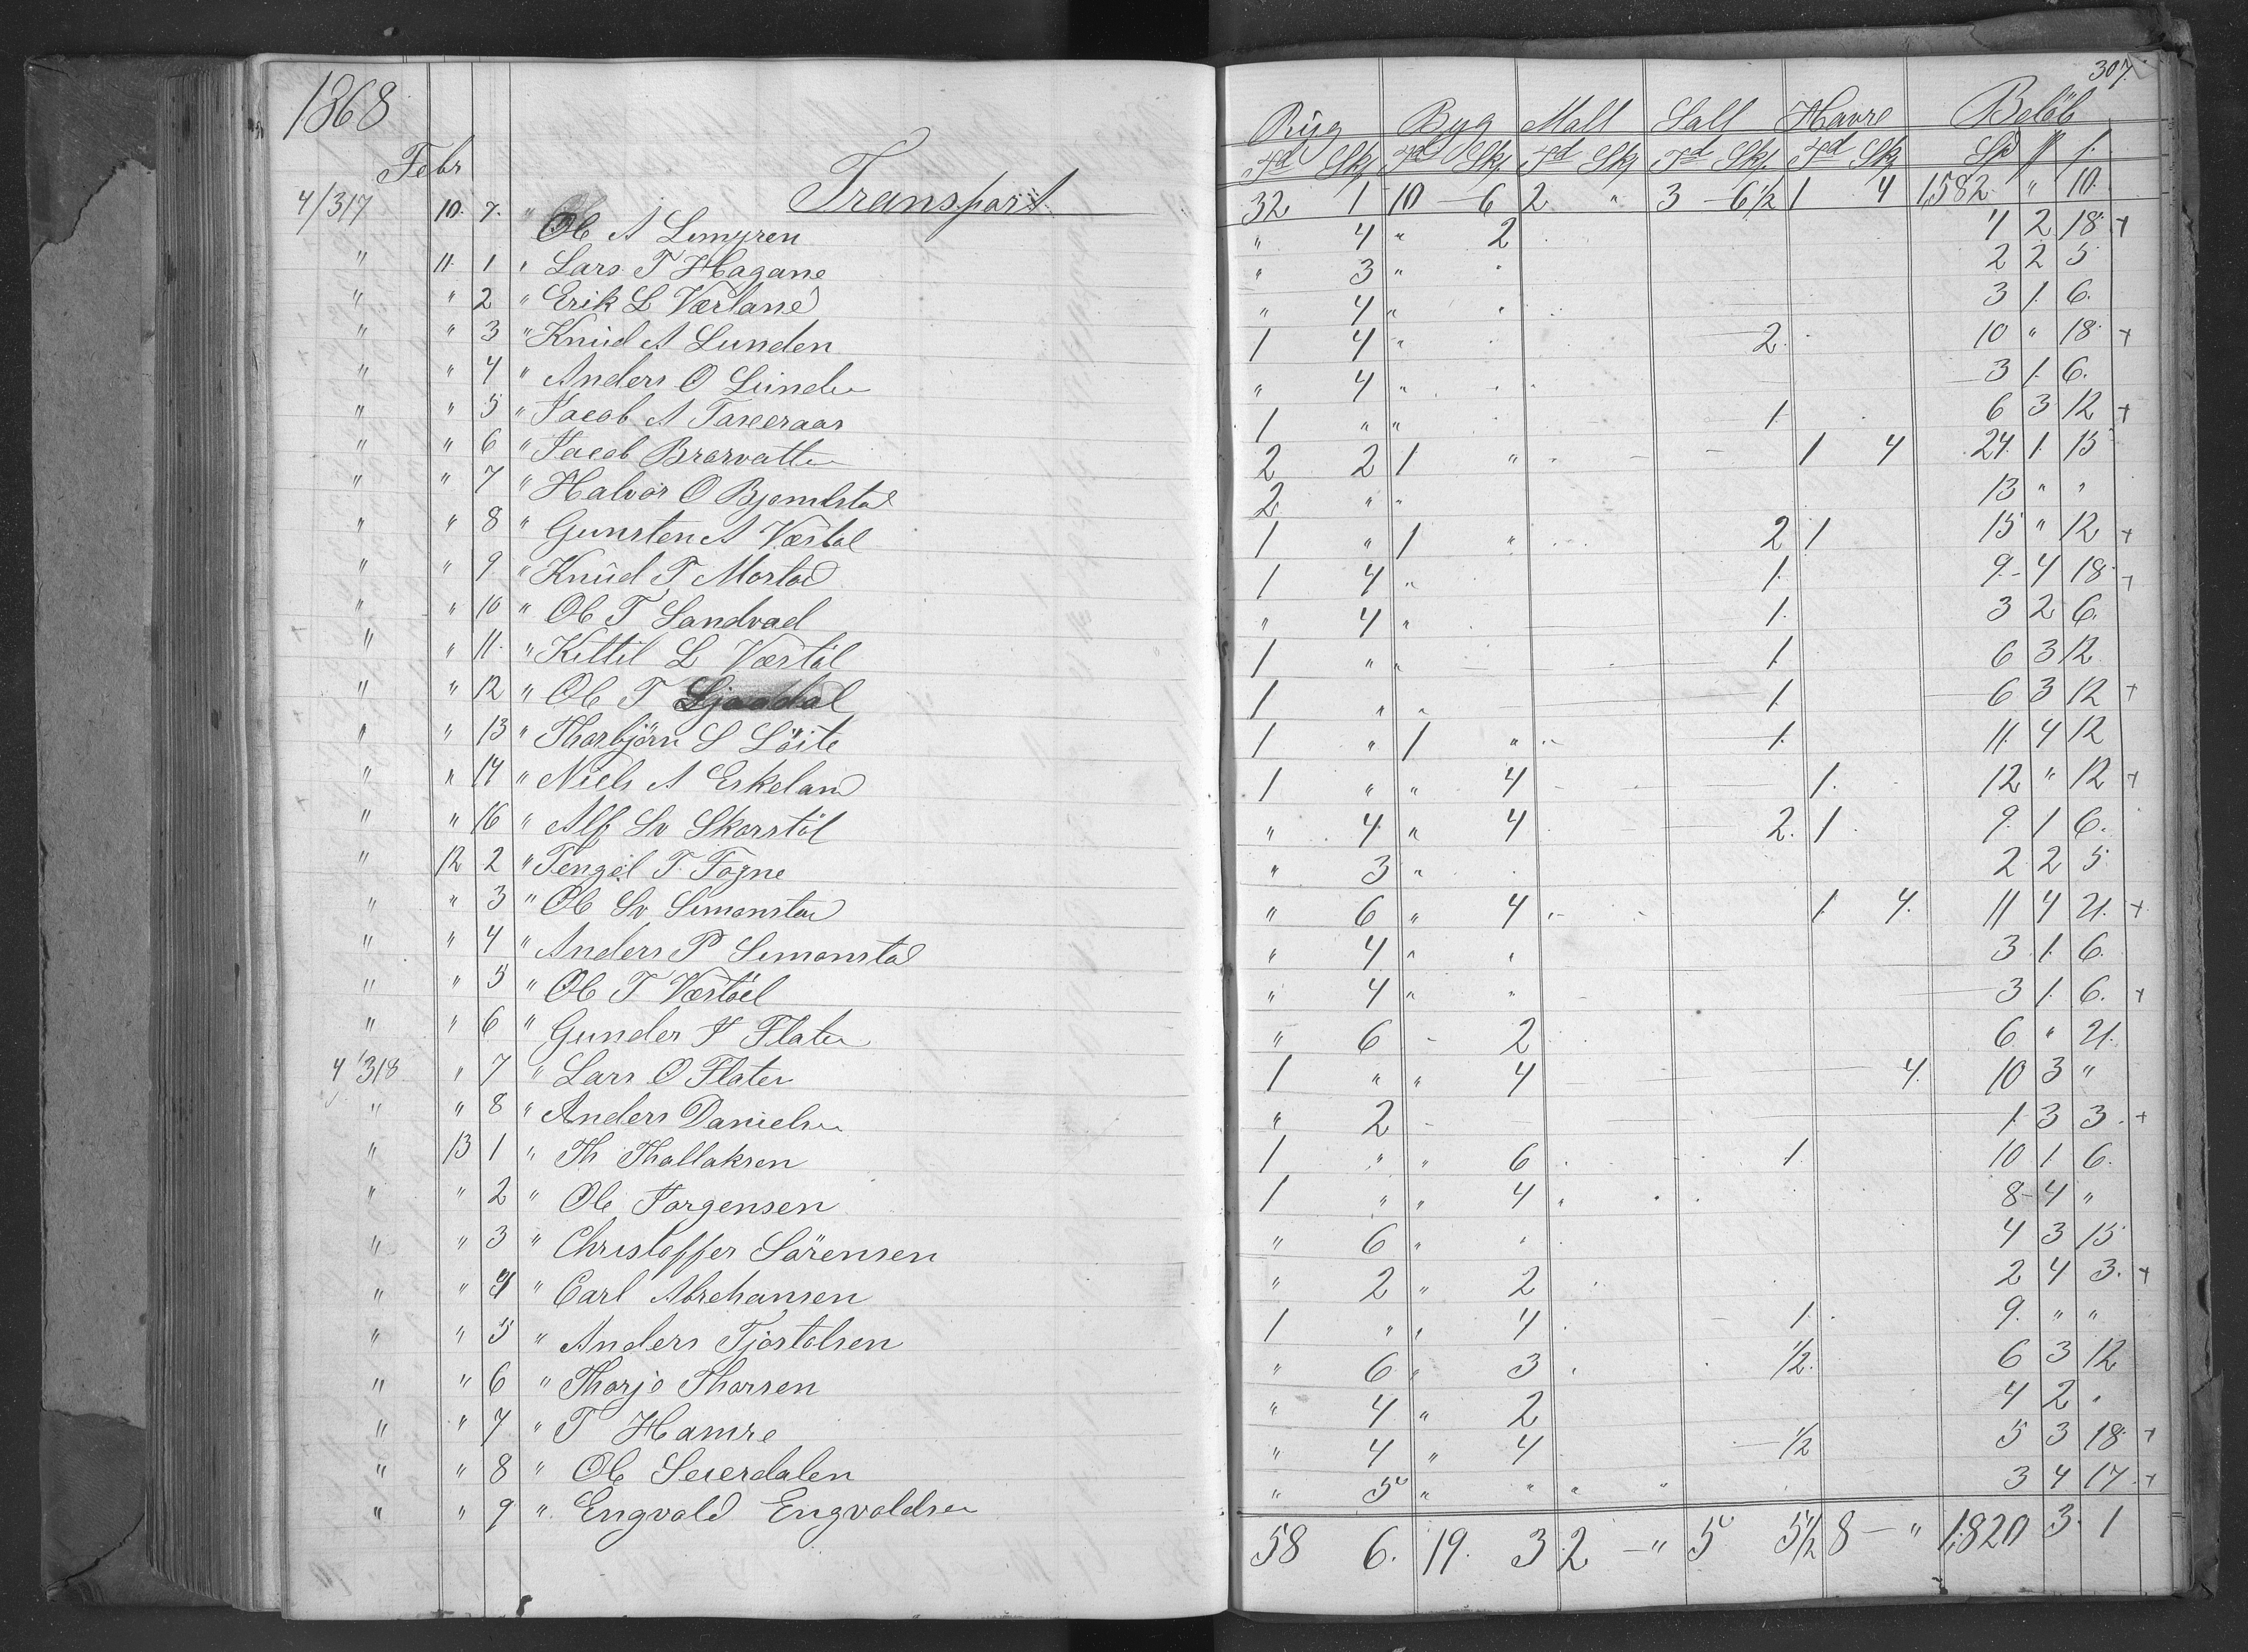 307.
1868
Rüg Byg Malt Salt Havre Beløb
Febr
Td Skj Td Skj Td Skj Td Skj Td Skj Sp
Transport 32 1 10 - 6 2 " 3 - 6 1/2 1 4 1,582 " 10.
4/317 10. 7. " Ole A Limyren " 4 " 2 4 2 18 +
" 11. 1 " Lars T Hagane " 3 " 2 2 5
" " 2 " Erik L Værland " 4 " 3 1 6.
" " 3 " Knud A Lunden 1 4 " 2. 10 " 18 +
" " 4 " Anders O Lunden " 4 " 3 1 6.
" " 5 " Jacob A 1 " " 1 6 3 12 +
" " 6 " Jacob 2 2 1 " 1 4 24. 1. 15
" " 7 " Halvor O 2 " " 13 " "
" " 8 " Gunsten A Væstøl 1 " 1 " 2 1 15 " 12 +
" " 9 " Knud T 1 4 " 1. 9 - 4 18 +
" " 10 " Ole T Sandvad " 4 " 1. 3 2 6.
" " 11. " Kittil L Væstøl 1 " " 1 6 3 12
" " 12 " Ole T 1 " " 1 6 3 12 +
" " 13 " Thorbjörn S Löite 1 " 1 " 1. 11 4 12
" " 14 " Niels A Eskeland 1 " " 4 1. 12 " 12 +
" " 16 " Alf Sv Skorstöl " 4 " 4 2. 1 9. 1 6.
" 12 2 " Tengel T. Fogne " 3 " 2 2 5
" " 3 " Ole Sv Simonstad " 6 " 4 1 4. 11 4 21. +
" " 4 " Anders P Simonstad " 4 " " 3 1 6.
" " 5 " Ole T Væstöl " 4 " " 3 1 6. +
" " 6 " Gunder Flaten " 6 - 2 6 " 21.
4/318 " 7 " Lars O Flaten 1 " " 4 4. 10 3 "
" " 8 " Anders Danielsen " 2 - 1 3 3. +
" 13 1 " Th Thallaksen 1 " " 6 1. 10 1 6.
" " 2 " Ole Jorgensen 1 " " 4 8 - 4 "
" " 3 " Christoffer Sörensen " 6 " 4 3 15
" " 4 " Carl Abrehamsen " 2 " 2 2 4 3. +
" " 5 " Anders Tjostolsen 1 " " 4 1. 9. " "
" " 6 " Thorjo Thorsen " 6 " 3 1/2. 6 3 12
" " 7 " T Hamre " 4 " 2 4 2 "
" " 8 " Ole Seierdalen " 4 " 4 1/2 5 3 18 +
" " 9 " Engvald Engvoldsen " 5 " " " " 3 4 17 +
58 6. 19. 3 2 - " 5 5 1/2 8 - " 1,820 3. 1